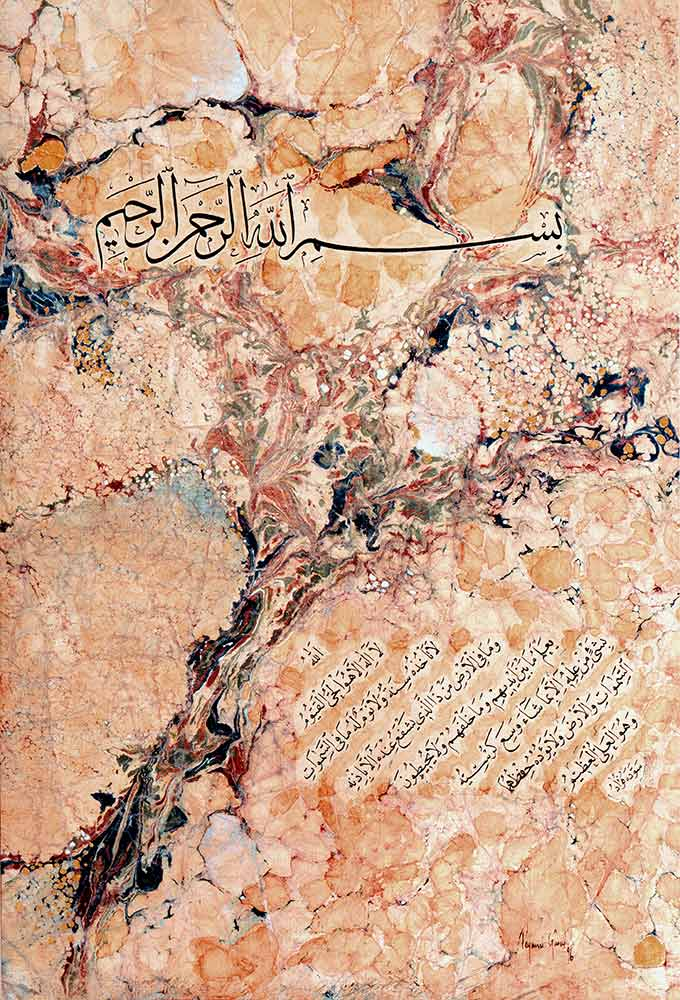 بِسْمِ اللّٰهِ الرَّحْمٰنِ الرَّحِيمِ
اَللّٰهُ
لَا اِلٰهَ اِلَّا هُوَ الْحَيُّ الْقَيُّومُ
لَا تَأْخُذُهُ سِنَةٌ وَلَا نَوْمٌ لَهُ مَا فِي السَّمٰوَاتِ
وَمَا فِي الْاَرْضِ مَنْ ذَا الَّذِي يَشْفَعُ عِنْدَهُ اِلَّا بِاِذْنِهِ
يَعْلَمُ مَا بَيْنَ اَيْدِيهِمْ وَمَا خَلْفَهُمْ وَلَا يُحِيطُونَ
بِشَيْءٍ مِنْ عِلْمِهِ اِلَّا بِمَا شَاءَ وَسِعَ كُرْسِيُّهُ
السَّمٰوَاتِ وَالْاَرْضَ وَلَا يَؤُدُهُ حِفْظُهُمَا
وَهُوَ الْعَلِيُّ الْعَظِيمُ
سوّده فؤاد